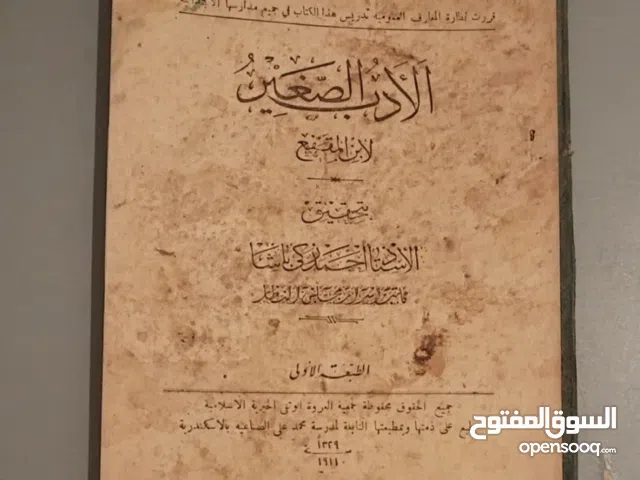 قررت نظارة المعارف العمومية تدريس هذا الكتاب في جميع مدارسها
الأدب الصغير
لابن المقفع
بتحقيق
الاستاذ احمد زكي باشا
كاتب اسرار مجلس النظار
الطبعة الأولى
جميع الحقوق محفوظة لجمعية العروة الوثقى الخيرية الاسلامية
على ذمتها وبمطبعتها التابعة لمدرسة محمد علي الصناعية بالاسكندرية
سنة ١٣٢٩
١٩١١
السوق المفتوح
opensooq.com